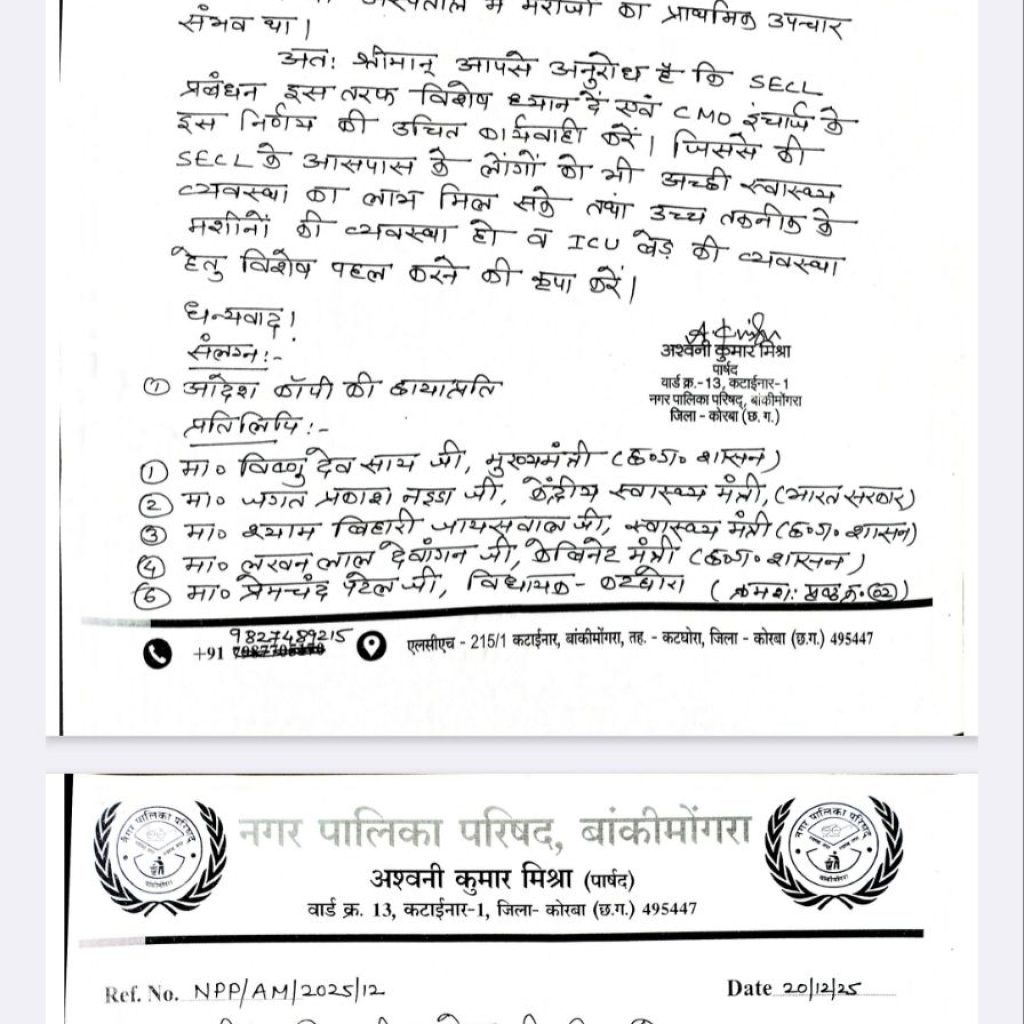 अस्पताल में मरीजों का प्राथमिक उपचार
संभव था।
अतः श्रीमान् आपसे अनुरोध है कि SECL
प्रबंधन इस तरफ विशेष ध्यान दें एवं CMO इंचार्ज के
इस निर्णय की उचित कार्यवाही करें। जिससे की
SECL के आसपास के लोगों को भी अच्छी स्वास्थ्य
व्यवस्था का लाभ मिल सके तथा उच्च तकनीक के
मशीनों की व्यवस्था हो व ICU बेड़ की व्यवस्था
हेतु विशेष पहल करने की कृपा करें।
धन्यवाद।
संलग्न:-
① आदेश कॉपी की छायाप्रति
अश्वनी कुमार मिश्रा
पार्षद
वार्ड क्र.-13, कटाईनार-1
नगर पालिका परिषद्, बांकीमोंगरा
जिला - कोरबा (छ.ग.)
प्रतिलिपि:-
① मा० विष्णु देव साय जी, मुख्यमंत्री (छ०ग० शासन)
② मा० जगत प्रकाश नड्डा जी, केंद्रीय स्वास्थ्य मंत्री, (भारत सरकार)
③ मा० श्याम बिहारी जायसवाल जी, स्वास्थ्य मंत्री (छ०ग० शासन)
④ मा० लखन लाल देवांगन जी, केबिनेट मंत्री (छ०ग० शासन)
⑤ मा० प्रेमचंद पटेल जी, विधायक - कटघोरा (क्रमशः पृष्ठ क्र.02)
9827489215
+91
एलसीएच - 215/1 कटाईनार, बांकीमोंगरा, तह. - कटघोरा, जिला - कोरबा (छ.ग.) 495447
नगर पालिका परिषद, बांकीमोंगरा
अश्वनी कुमार मिश्रा (पार्षद)
वार्ड क्र. 13, कटाईनार-1, जिला- कोरबा (छ.ग.) 495447
Ref. No. NPP/AM/2025/12
Date 20/12/25